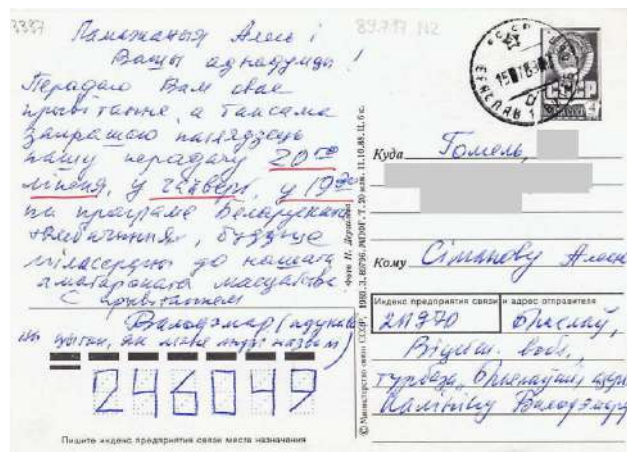 3337
89.7.17 N2
Паважаныя Алесь і
Вашы аднадумцы!
Перадаю Вам свае
прывітанне, а таксама
запрашаю паглядзець
нашу перадачу 20го
ліпеня, у чацвер, у 19
па праграме Беларускага
тэлебачання, будзьце
міласэрдны да нашага
аматарскага мастацтва
З прывітаннем
Валодэмар
як мяне людзі назвалі)
246049
Пишите индекс предприятия связи места назначения
© Министерство связи СССР, 1988.
СССР
Куда Гомель,
Кому Сіманову Алесю
Индекс предприятия связи и адрес отправителя
211970 Браслаў,
Віцебск. вобл.,
турбаза, Браслаўскія азёры
Калініну Валодэмару